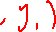 , y, )